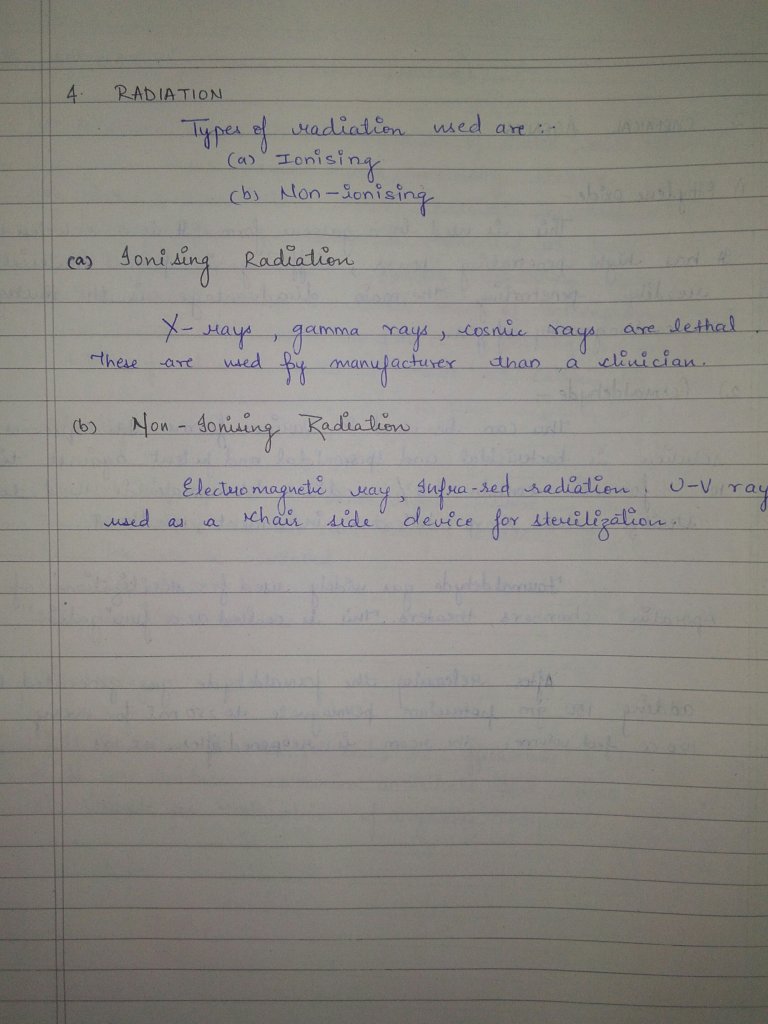 4. RADIATION
Types of radiation used are :-
(a) Ionising
(b) Non-ionising
(a) Ionising Radiation
X-rays, gamma rays, cosmic rays are lethal.
These are used by manufacturer than a clinician.
(b) Non-Ionising Radiation
Electromagnetic ray, Infra-red radiation, U-V ray
used as a chair side device for sterilization.